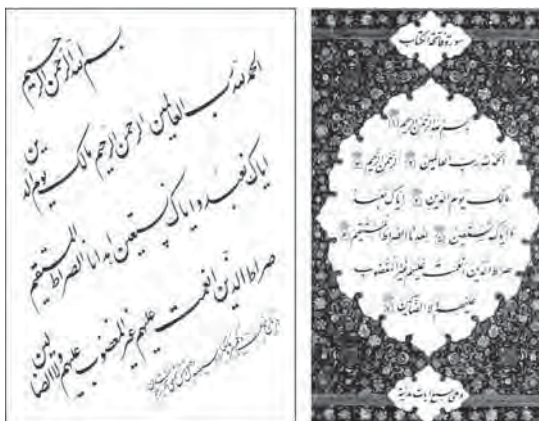 بسم الله الرحمن الرحیم
الحمد لله رب العالمین الرحمن الرحیم مالک یوم الدین
ایاک نعبد و ایاک نستعین اهدنا الصراط المستقیم
صراط الذین انعمت علیهم غیر المغضوب علیهم ولا الضالین
سورة فاتحة الکتاب
بسم الله الرحمن الرحیم ﴿۱﴾
الحمد لله رب العالمین ﴿۲﴾ الرحمن الرحیم ﴿۳﴾
مالک یوم الدین ﴿۴﴾ ایاک نعبد
و ایاک نستعین ﴿۵﴾ اهدنا الصراط المستقیم ﴿۶﴾
صراط الذین انعمت علیهم غیر المغضوب
علیهم ولا الضالین ﴿۷﴾